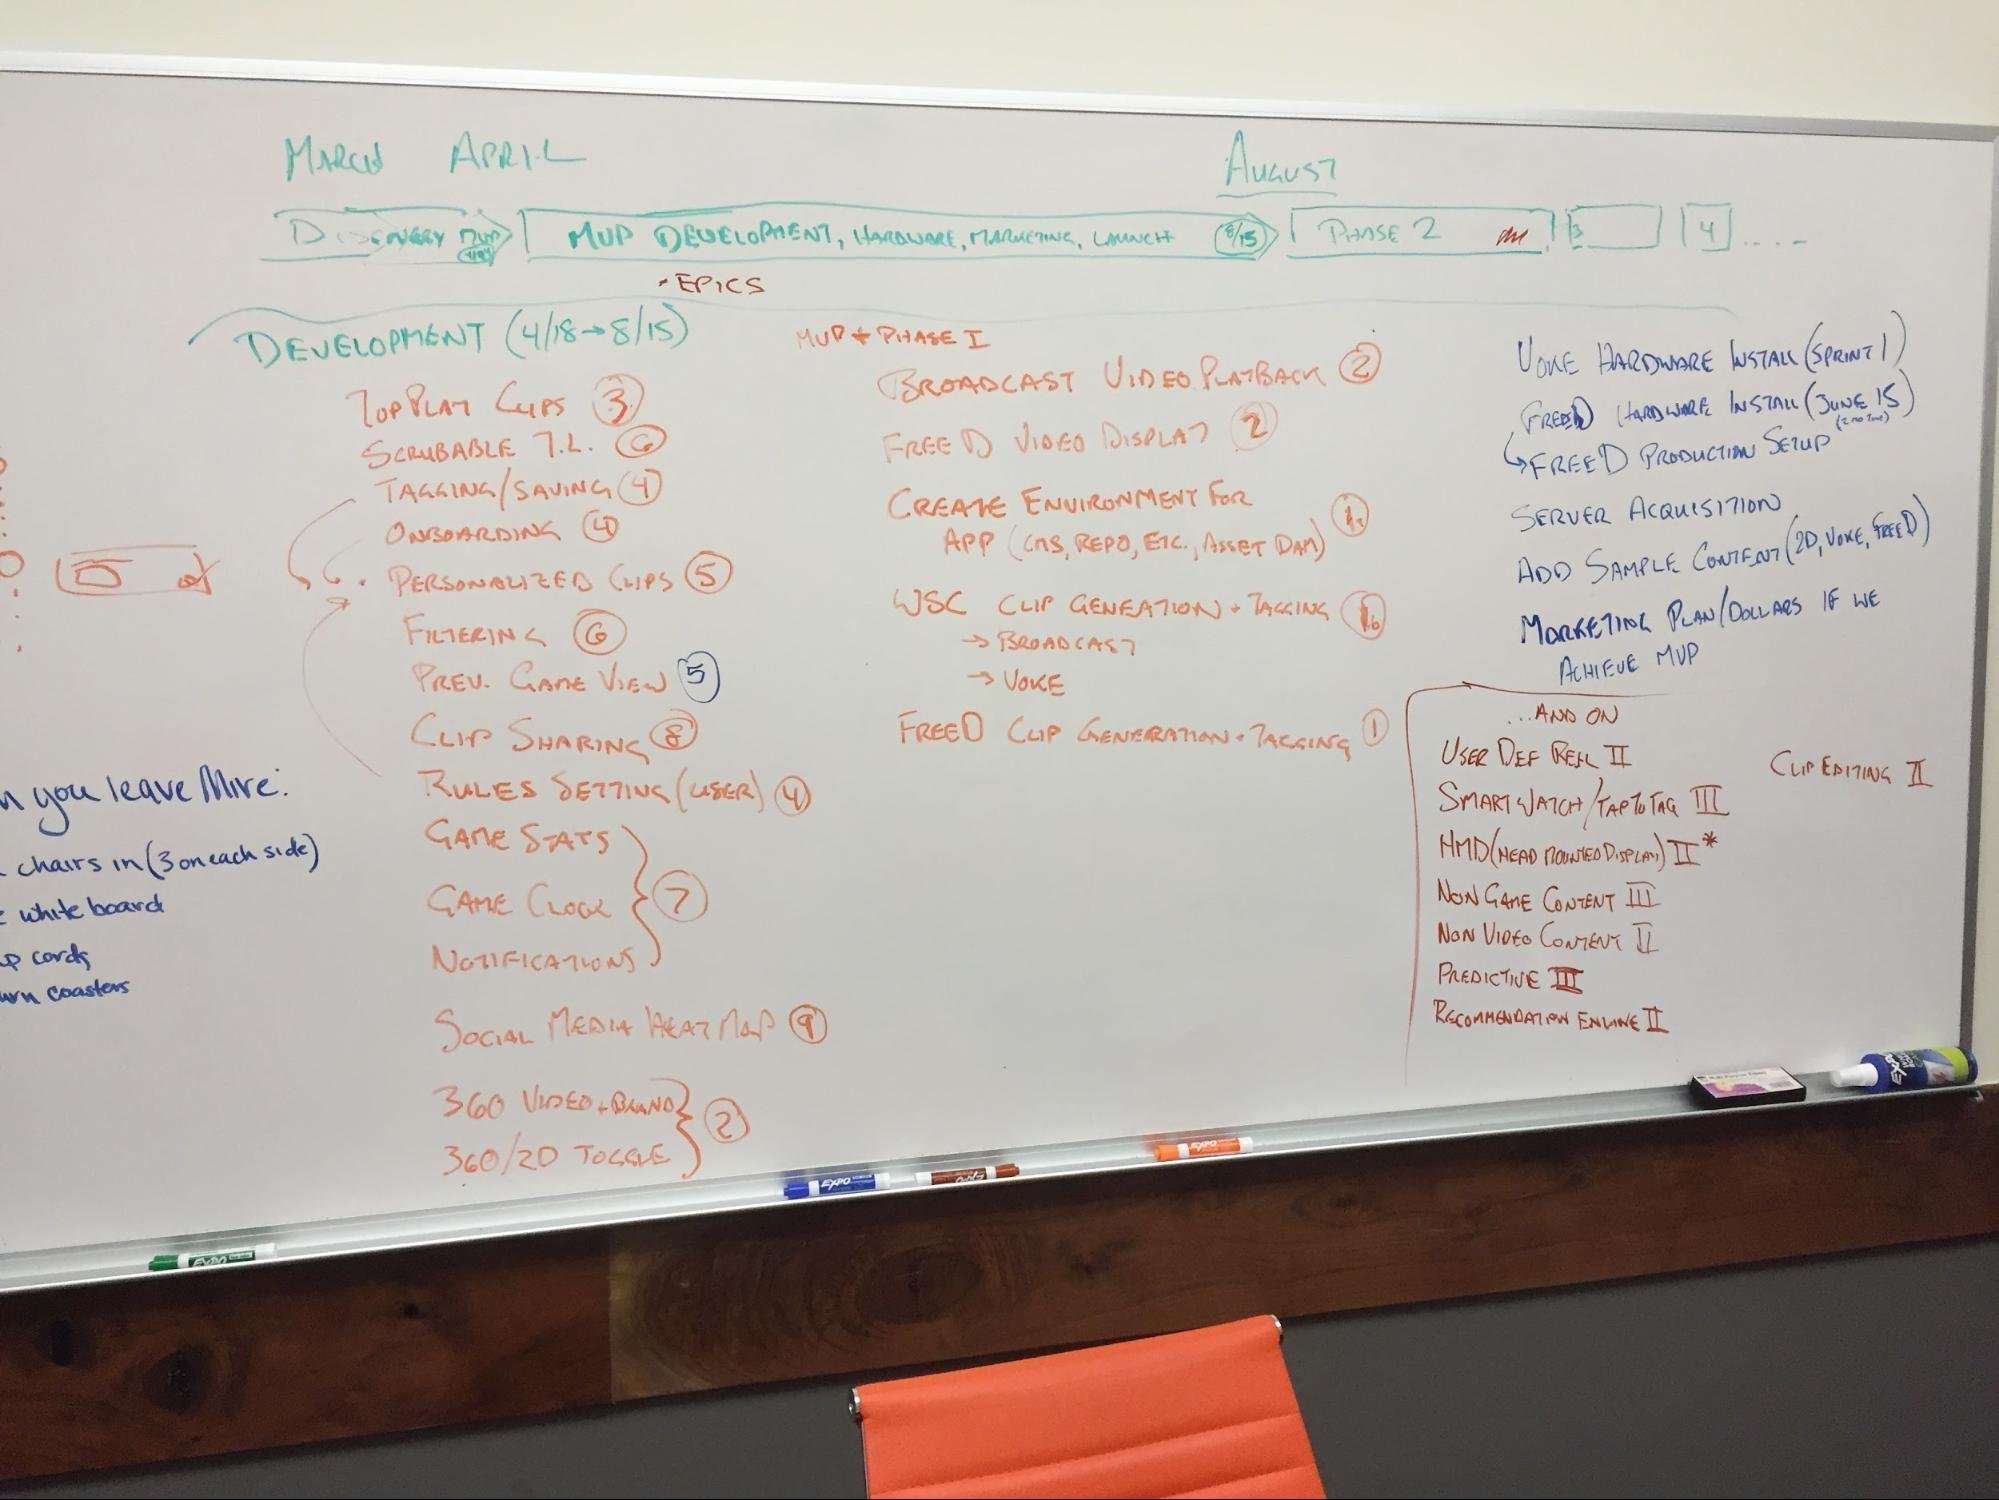 MARCH APRIL
AUGUST
DISCOVERY MVP
MVP DEVELOPMENT, HARDWARE, MARKETING, LAUNCH 8/15
PHASE 2
3
4 ....
·EPICS
DEVELOPMENT (4/18→8/15)
MVP + PHASE I
TOP PLAY CLIPS 3
SCRUBABLE T.L. 6
TAGGING/SAVING 4
ONBOARDING 4
PERSONALIZED CLIPS 5
FILTERING 6
PREV. GAME VIEW 5
CLIP SHARING 8
RULES SETTING (USER) 4
GAME STATS
GAME CLOCK
NOTIFICATIONS
7
SOCIAL MEDIA HEAT MAP 9
360 VIDEO + BLAND
360/2D TOGGLE
2
BROADCAST VIDEO PLAYBACK 2
FREE D VIDEO DISPLAY 2
CREATE ENVIRONMENT FOR
APP (CMS, REPO, ETC., ASSET DAM) 1
WSC CLIP GENEATION + TAGGING
→ BROADCAST
→ VOKE
FREED CLIP GENERATION + TAGGING 1
VOKE HARDWARE INSTALL (SPRINT 1)
FREED HARDWARE INSTALL (JUNE 15)
↳ FREED PRODUCTION SETUP
SERVER ACQUISITION
ADD SAMPLE CONTENT (2D, VOKE, FREED)
MARKETING PLAN/DOLLARS IF WE
ACHIEVE MVP
...AND ON
USER DEF REEL II
SMART WATCH/TAP TO TAG III
HMD (HEAD MOUNTED DISPLAY) II*
NON GAME CONTENT III
NON VIDEO CONTENT II
PREDICTIVE III
RECOMMENDATION ENGINE II
CLIP EDITING II
you leave Mire:
chairs in (3 on each side)
white board
cords
coasters
EXPO
EXPO
EXPO
EXPO
EXPO